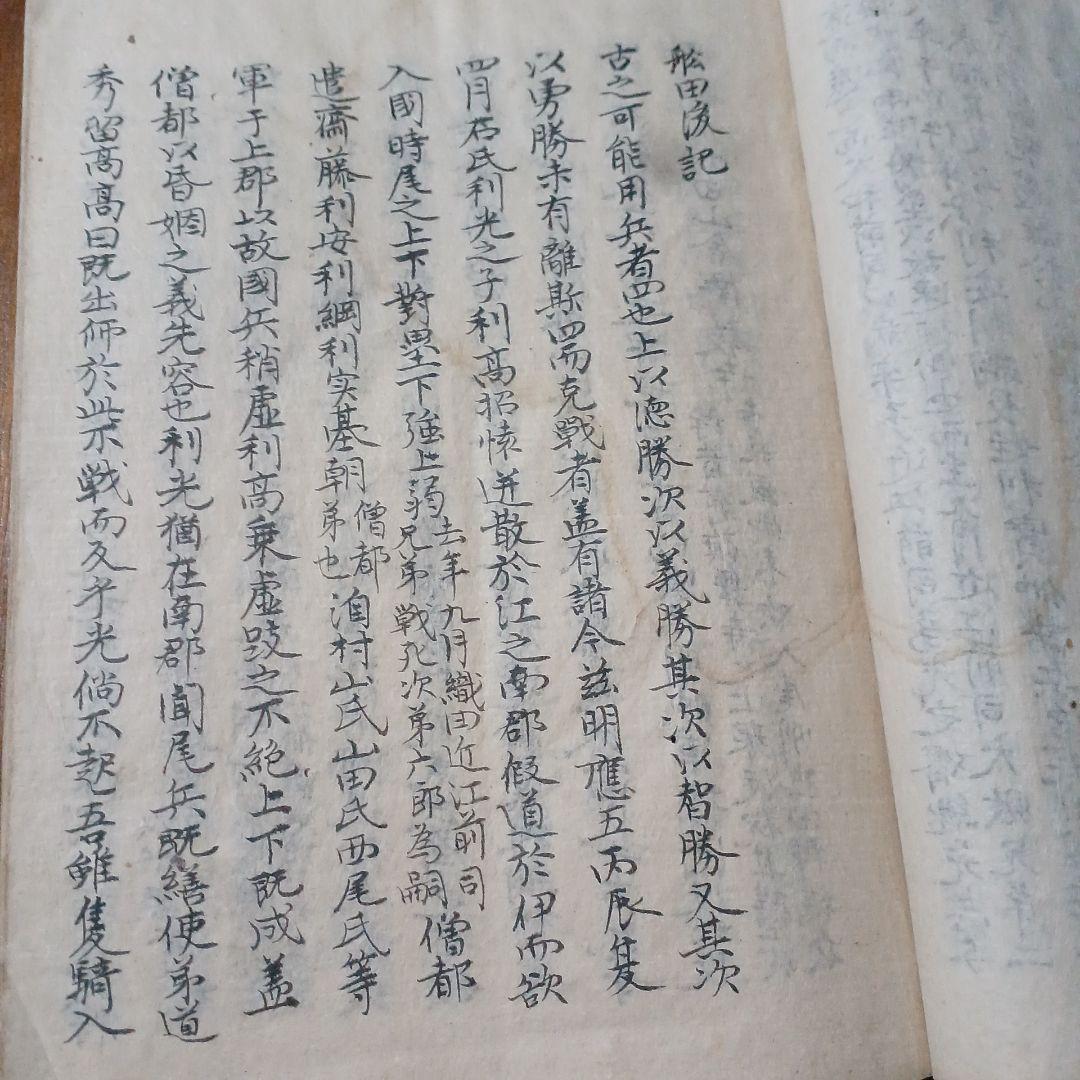 船田後記
古之可能用兵者四也上以徳勝次以義勝其次以智勝又其次
以勇勝未有離斯四而克戰者盖有諸今茲明應五丙辰夏
四月石氏利光之子利高招懐迸散於江之南郡假道於伊而欲
入國時尾之上下對壘下強上弱去年九月織田近江前司兄弟戰死次弟六郎為嗣僧都
遣齋藤利安利綱利実基朝僧都弟也洎村山氏山田氏西尾氏等
軍于上郡以故國兵稍虚利高乗虚跂之不絶上下既成盖
僧都以昏姻之義先容也利光猶在南郡聞尾兵既繕使弟道
秀留高高曰既出師於此不戦而反乎光倘不起吾雖隻騎入